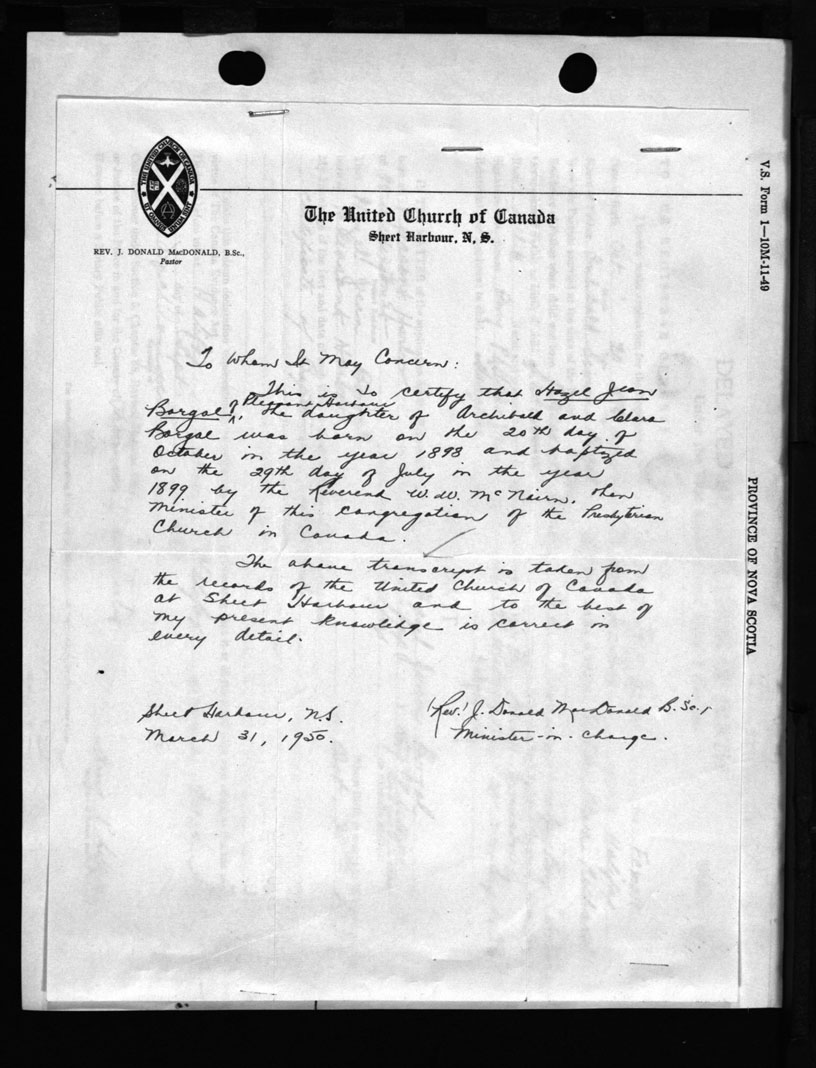 THE UNITED CHURCH OF CANADA
UT OMNES UNUM SINT
The United Church of Canada
Sheet Harbour, N. S.
REV. J. DONALD MACDONALD, B.Sc.,
Pastor
V.S. Form 1—10M-11-49
PROVINCE OF NOVA SCOTIA
To Whom It May Concern:
This is to certify that Hazel Jean
Borgal of Pleasant Harbour, the daughter of Archibald and Clara
Borgal was born on the 20th day of
October in the year 1898 and baptized
on the 29th day of July in the year
1899 by the Reverend W. W. McNairn, then
minister of this congregation of the Presbyterian
Church in Canada.
The above transcript is taken from
the records of the United Church of Canada
at Sheet Harbour and to the best of
my present knowledge is correct in
every detail.
Sheet Harbour, N.S.
March 31, 1950.
(Rev.) J. Donald MacDonald B.Sc.,
Minister-in-charge.